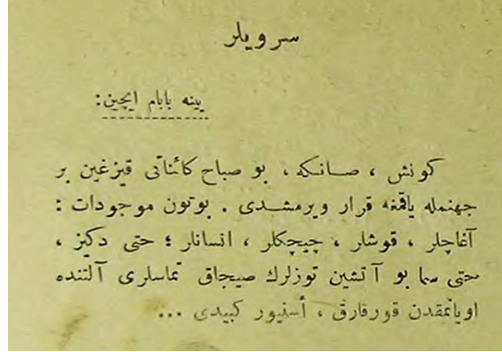 سرويلر
يينه بابام ايچين:
كونش ، صانكه ، بو صباح كائناتى قيزغين بر
جهنمله ياقمغه قرار ويرمشدى . بوتون موجودات :
آغاچلر ، قوشلر ، چيچكلر ، انسانلر ؛ حتى دكيز ،
حتى سما بو آتشين توزلرك صيجاق تماسلرى آلتنده
اويانمقدن قورقارق ، أسنيور كبيدى ...